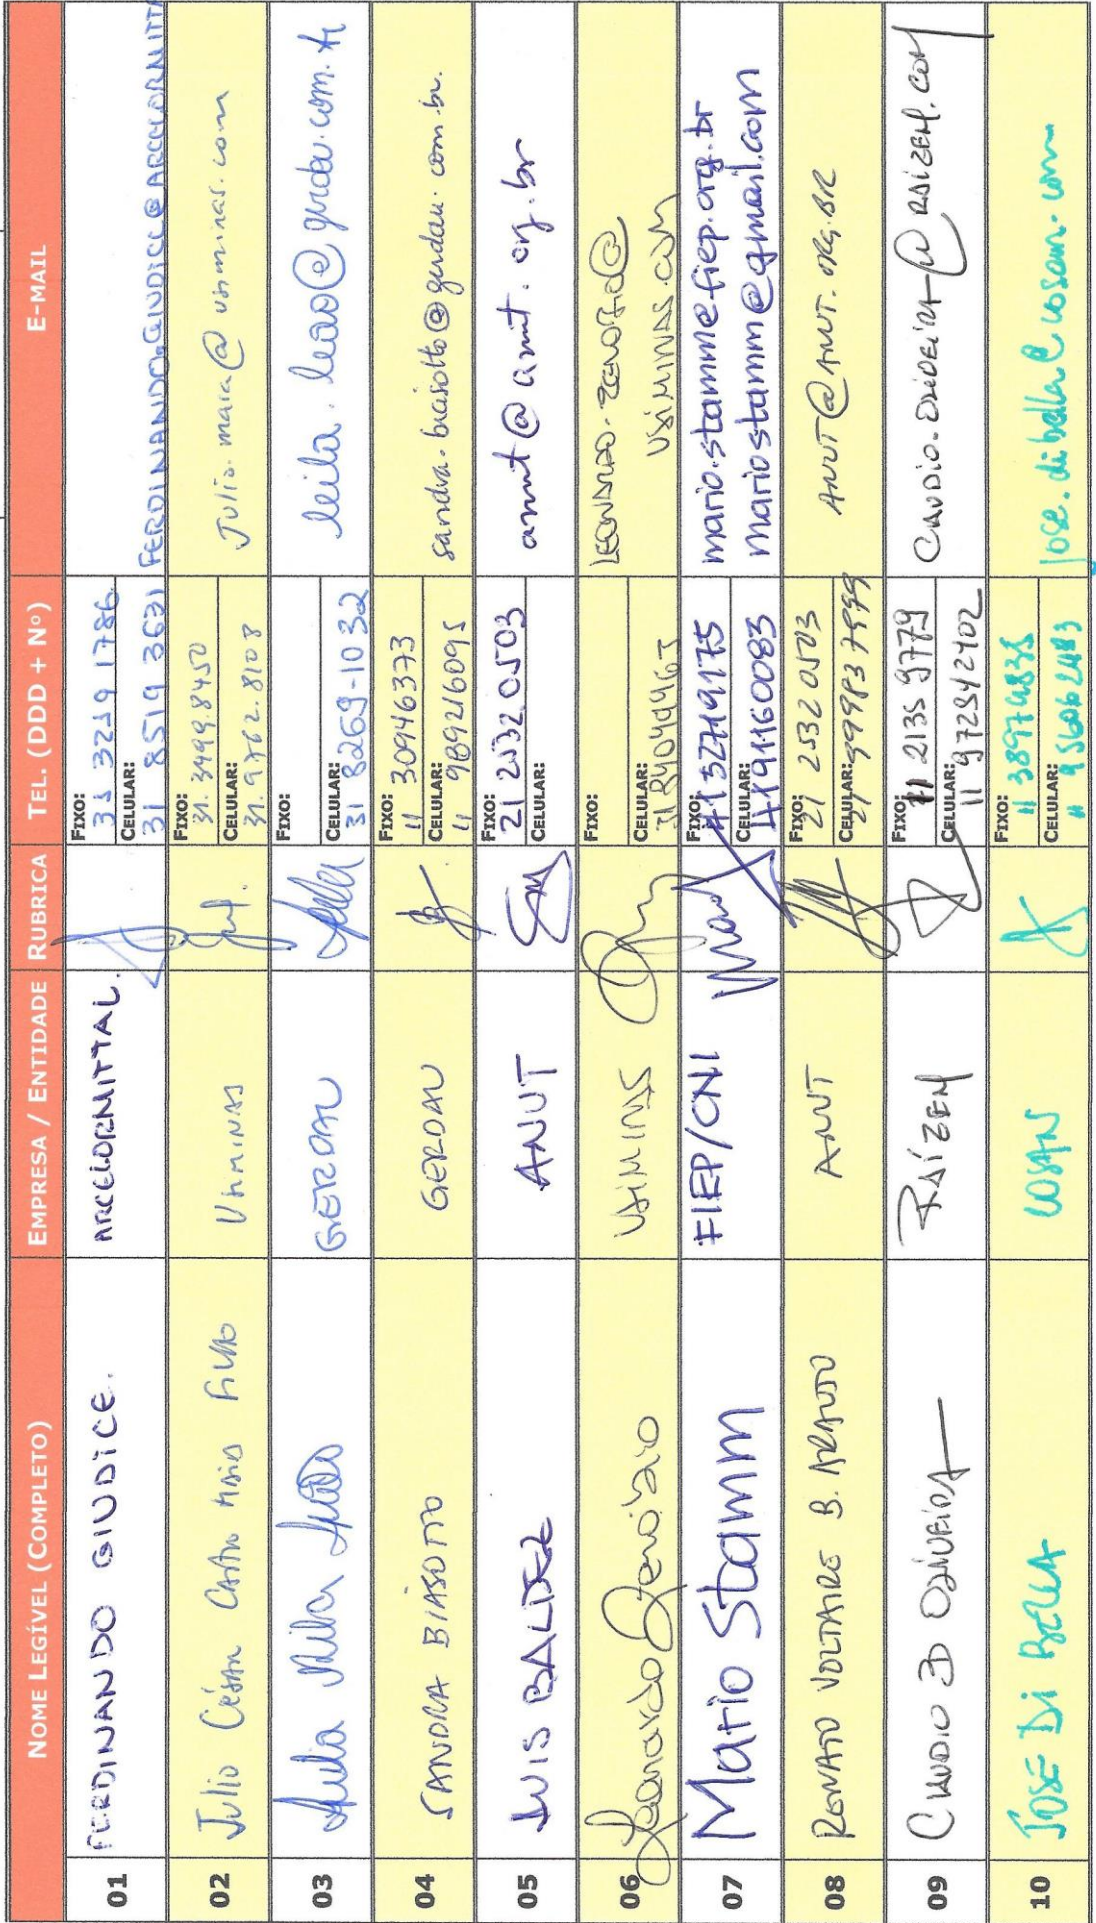 NOME LEGÍVEL (COMPLETO) EMPRESA / ENTIDADE RUBRICA TEL. (DDD + Nº) E-MAIL
01 FERDINANDO GIUDICE. ARCELORMITTAL.
FIXO: 31 3219 1786
CELULAR: 31 8519 3631
FERDINANDO.GIUDICE@ARCELORMITTA
02 Julio César
FIXO: 31. 3499.8450
CELULAR: 31. 9762.8108
03 GERDAU
FIXO:
CELULAR: 31 8269-1032
leila.leao@
04 SANDRA BIASOTTO GERDAU
FIXO: 11 30946373
CELULAR: 11 989216095
sandra.biasotto@gerdau.com.br.
05 LUIS BALDEZ ANUT
FIXO: 21 2532.0503
CELULAR:
anut@anut.org.br
06 Leonardo Zenóbio USIMINAS
FIXO:
CELULAR:
LEONARDO.ZENOBIO@
USIMINAS.COM
07 Mario Stamm FIEP/CNI
FIXO: 41 32719175
CELULAR: 41 91160083
mario.stamm@fiep.org.br
mariostamm@gmail.com
08 RENATO VOLTAIRE B. ARAUJO ANUT
FIXO: 21 2532 0503
CELULAR:
ANUT@ANUT.ORG.BR
09 CLAUDIO B OLIVEIRA RAÍZEN
FIXO: 11 2135 9779
CELULAR: 11 972542402
CLAUDIO.OLIVEIRA@RAIZEN.COM
10 JOSÉ DI BELLA COSAN
FIXO: 11 38979835
CELULAR:
jose.dibella@cosan.com